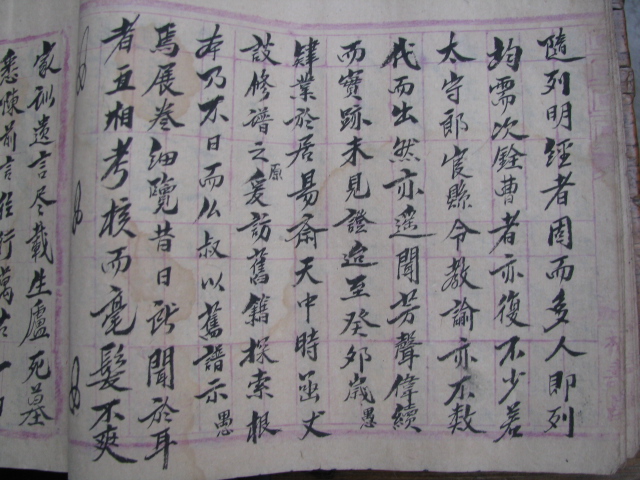 隨列明經者固而多人即列
均需次銓曹者亦復不少若
太守郎官縣令教諭亦不數
代而出然亦遥聞芳聲偉績
而實跡未見證迨至癸夘歲愚
肄業於居易齋天中時函丈
設修譜之原爰訪舊籍探索根
本乃不日而仏叔以舊譜示愚
焉展卷細覽昔日所聞於耳
者互相考核而毫髮不爽
家訓遺言尽載生廬死墓
前言往行萬古一